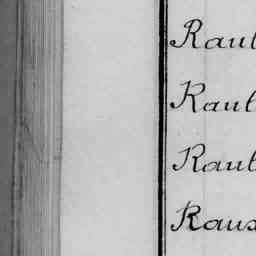 Raul
Raul
Raul
Raux